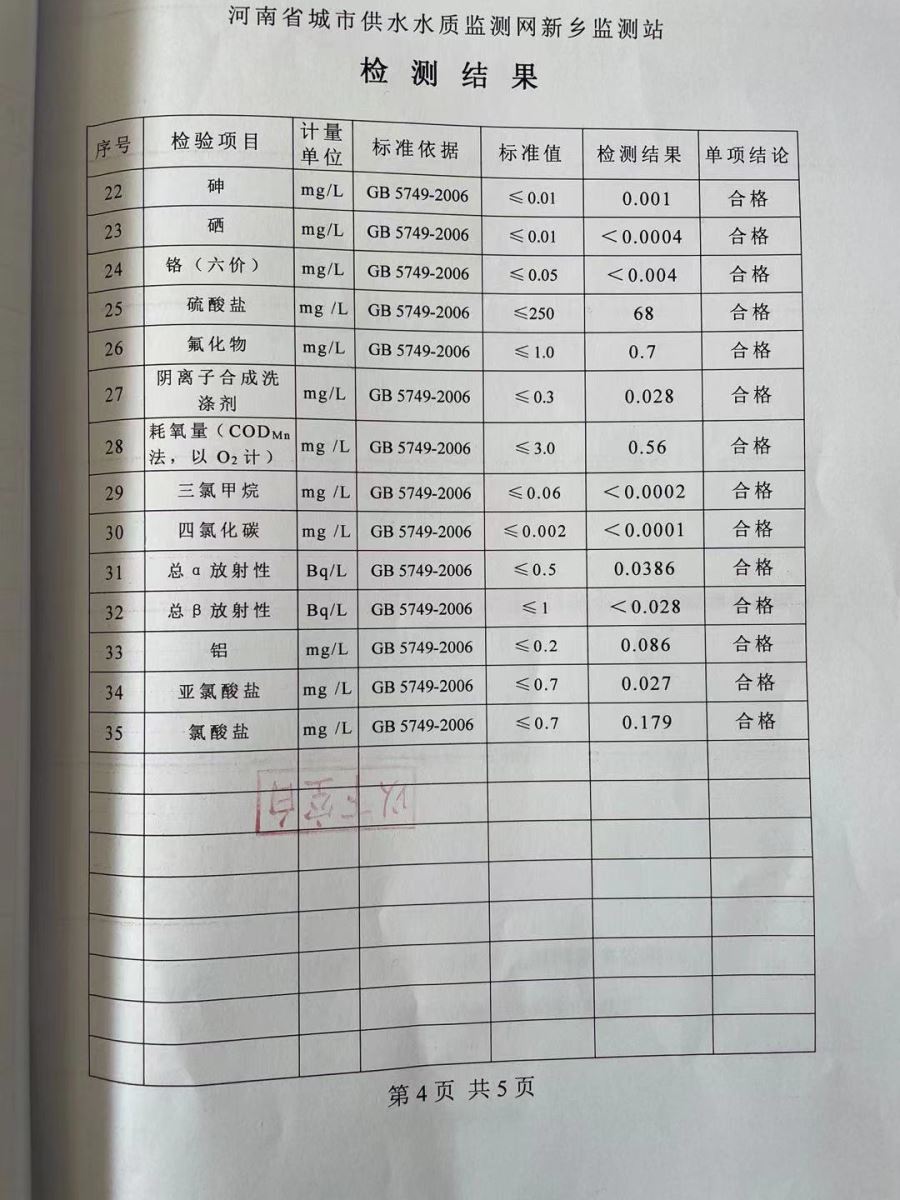 河南省城市供水水质监测网新乡监测站
检测结果
序号 检验项目 计量单位 标准依据 标准值 检测结果 单项结论
22 砷 mg/L GB 5749-2006 ≤0.01 0.001 合格
23 硒 mg/L GB 5749-2006 ≤0.01 <0.0004 合格
24 铬（六价） mg/L GB 5749-2006 ≤0.05 <0.004 合格
25 硫酸盐 mg /L GB 5749-2006 ≤250 68 合格
26 氟化物 mg/L GB 5749-2006 ≤1.0 0.7 合格
27 阴离子合成洗涤剂 mg/L GB 5749-2006 ≤0.3 0.028 合格
28 耗氧量（CODMn法，以 O2 计） mg /L GB 5749-2006 ≤3.0 0.56 合格
29 三氯甲烷 mg /L GB 5749-2006 ≤0.06 <0.0002 合格
30 四氯化碳 mg /L GB 5749-2006 ≤0.002 <0.0001 合格
31 总 α 放射性 Bq/L GB 5749-2006 ≤0.5 0.0386 合格
32 总 β 放射性 Bq/L GB 5749-2006 ≤1 <0.028 合格
33 铝 mg/L GB 5749-2006 ≤0.2 0.086 合格
34 亚氯酸盐 mg /L GB 5749-2006 ≤0.7 0.027 合格
35 氯酸盐 mg /L GB 5749-2006 ≤0.7 0.179 合格
以下空白
第 4 页 共 5 页